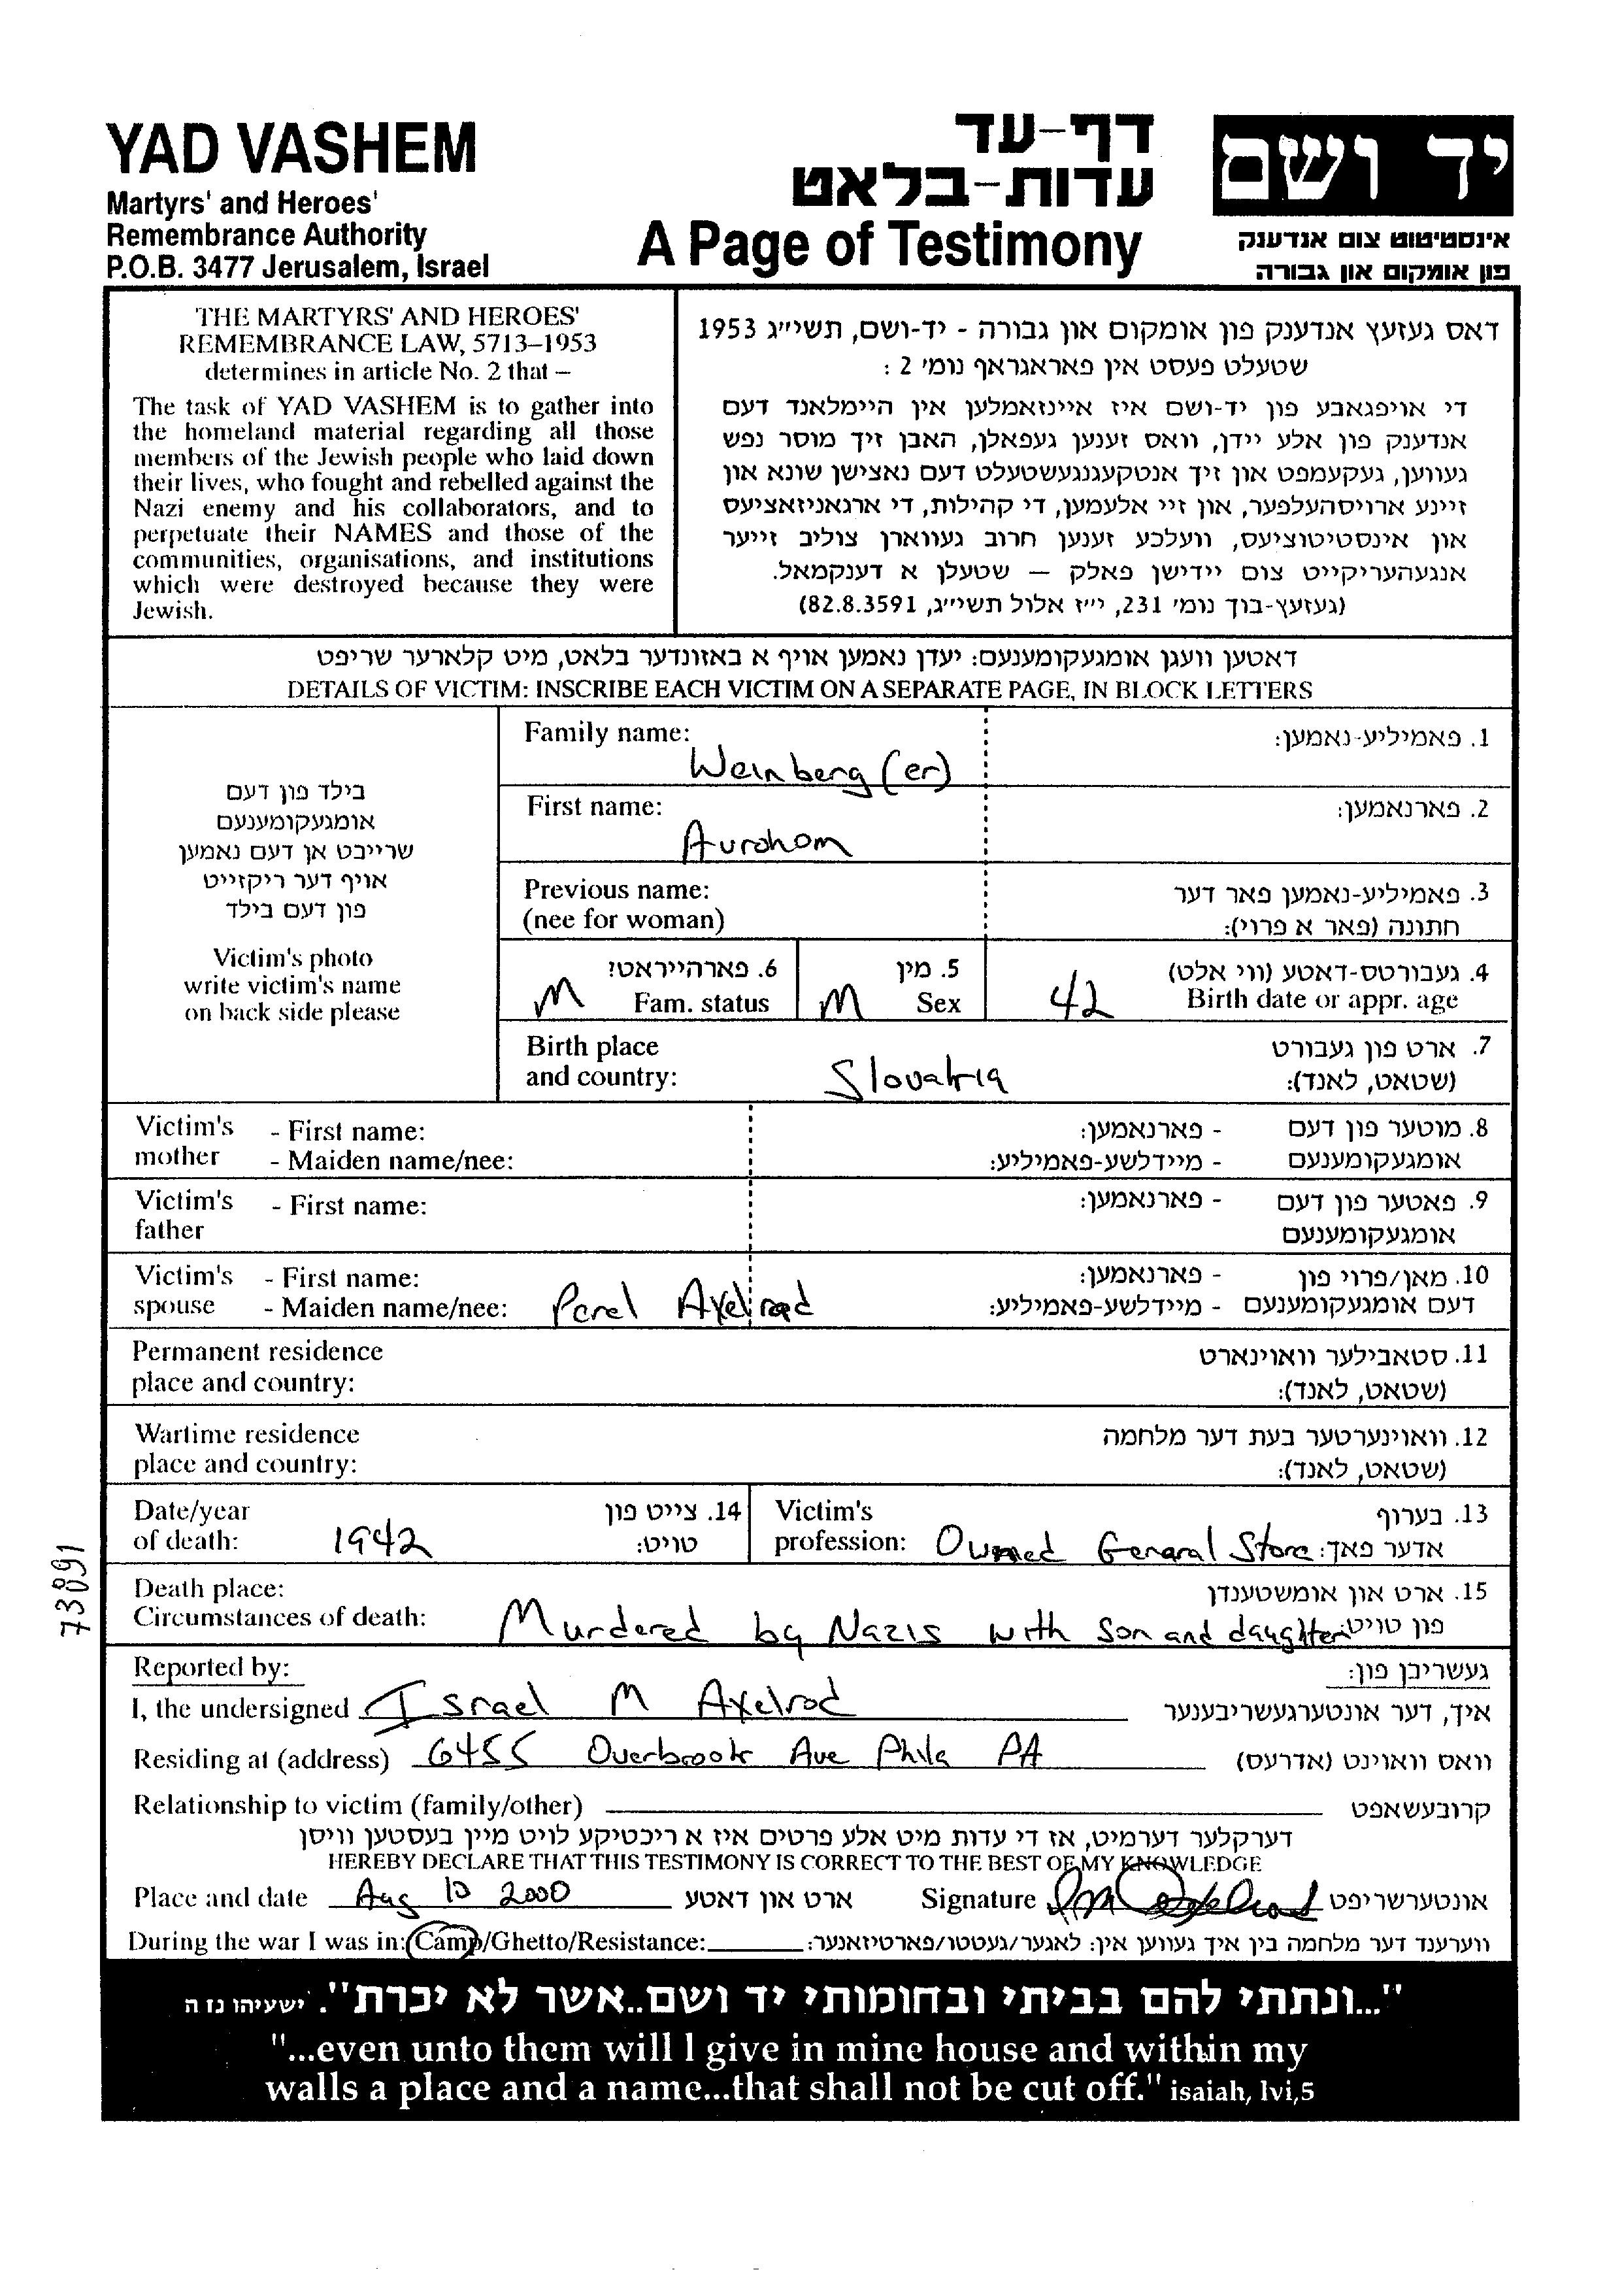 YAD VASHEM
Martyrs' and Heroes'
Remembrance Authority
P.O.B. 3477 Jerusalem, Israel
דף-עד
עדות-בלאט
A Page of Testimony
יד ושם
אינסטיטוט צום אנדענק
פון אומקום און גבורה
THE MARTYRS' AND HEROES'
REMEMBRANCE LAW, 5713–1953
determines in article No. 2 that –
The task of YAD VASHEM is to gather into
the homeland material regarding all those
members of the Jewish people who laid down
their lives, who fought and rebelled against the
Nazi enemy and his collaborators, and to
perpetuate their NAMES and those of the
communities, organisations, and institutions
which were destroyed because they were
Jewish.
דאס געזעץ אנדענק פון אומקום און גבורה - יד-ושם, תשי״ג 1953
שטעלט פעסט אין פאראגראף נומ׳ 2 :
די אויפגאבע פון יד-ושם איז איינזאמלען אין היימלאנד דעם
אנדענק פון אלע יידן, וואס זענען געפאלן, האבן זיך מוסר נפש
געווען, געקעמפט און זיך אנטקעגנגעשטעלט דעם נאצישן שונא און
זיינע ארויסהעלפער, און זיי אלעמען, די קהילות, די ארגאניזאציעס
און אינסטיטוציעס, וועלכע זענען חרוב געווארן צוליב זייער
אנגעהעריקייט צום יידישן פאלק — שטעלן א דענקמאל.
(געזעץ-בוך נומ׳ 231, י״ז אלול תשי״ג, 82.8.3591)
דאטען וועגן אומגעקומענעם: יעדן נאמען אויף א באזונדער בלאט, מיט קלארער שריפט
DETAILS OF VICTIM: INSCRIBE EACH VICTIM ON A SEPARATE PAGE, IN BLOCK LETTERS
בילד פון דעם
אומגעקומענעם
שרייבט אן דעם נאמען
אויף דער ריקזייט
פון דעם בילד
Victim's photo
write victim's name
on back side please
Family name: Weinberg (er) 1. פאמיליע-נאמען:
First name: Avrohom 2. פארנאמען:
Previous name: 3. פאמיליע-נאמען פאר דער
(nee for woman) חתונה (פאר א פרוי):
6. פארהייראט? 5. מין 4. געבורטס-דאטע (ווי אלט)
M Fam. status M Sex 42 Birth date or appr. age
Birth place 7. ארט פון געבורט
and country: Slovakia (שטאט, לאנד):
Victim's - First name: - פארנאמען: 8. מוטער פון דעם
mother - Maiden name/nee: - מיידלשע-פאמיליע: אומגעקומענעם
Victim's - First name: - פארנאמען: 9. פאטער פון דעם
father אומגעקומענעם
Victim's - First name: - פארנאמען: 10. מאן/פרוי פון
spouse - Maiden name/nee: Perel Axelrod - מיידלשע-פאמיליע: דעם אומגעקומענעם
Permanent residence 11. סטאבילער וואוינארט
place and country: (שטאט, לאנד):
Wartime residence 12. וואוינערטער בעת דער מלחמה
place and country: (שטאט, לאנד):
Date/year 14. צייט פון Victim's 13. בערוף
of death: 1942 טויט: profession: Owned General Store אדער פאך:
Death place: 15. ארט און אומשטענדן
Circumstances of death: Murdered by Nazis with son and daughter פון טויט
Reported by: געשריבן פון:
I, the undersigned Israel M Axelrod איך, דער אונטערגעשריבענער
Residing at (address) 6455 Overbrook Ave Phila PA וואס וואוינט (אדרעס)
Relationship to victim (family/other) קרובעשאפט
דערקלער דערמיט, אז די עדות מיט אלע פרטים איז א ריכטיקע לויט מיין בעסטען וויסן
HEREBY DECLARE THAT THIS TESTIMONY IS CORRECT TO THE BEST OF MY KNOWLEDGE
Place and date Aug 10 2000 ארט און דאטע Signature אונטערשריפט
During the war I was in: Camp/Ghetto/Resistance: ווערענד דער מלחמה בין איך געווען אין: לאגער/געטטו/פארטיזאנער:
"...ונתתי להם בביתי ובחומותי יד ושם..אשר לא יכרת". ישעיהו נז ה
"...even unto them will I give in mine house and within my
walls a place and a name...that shall not be cut off." isaiah, lvi,5
73891